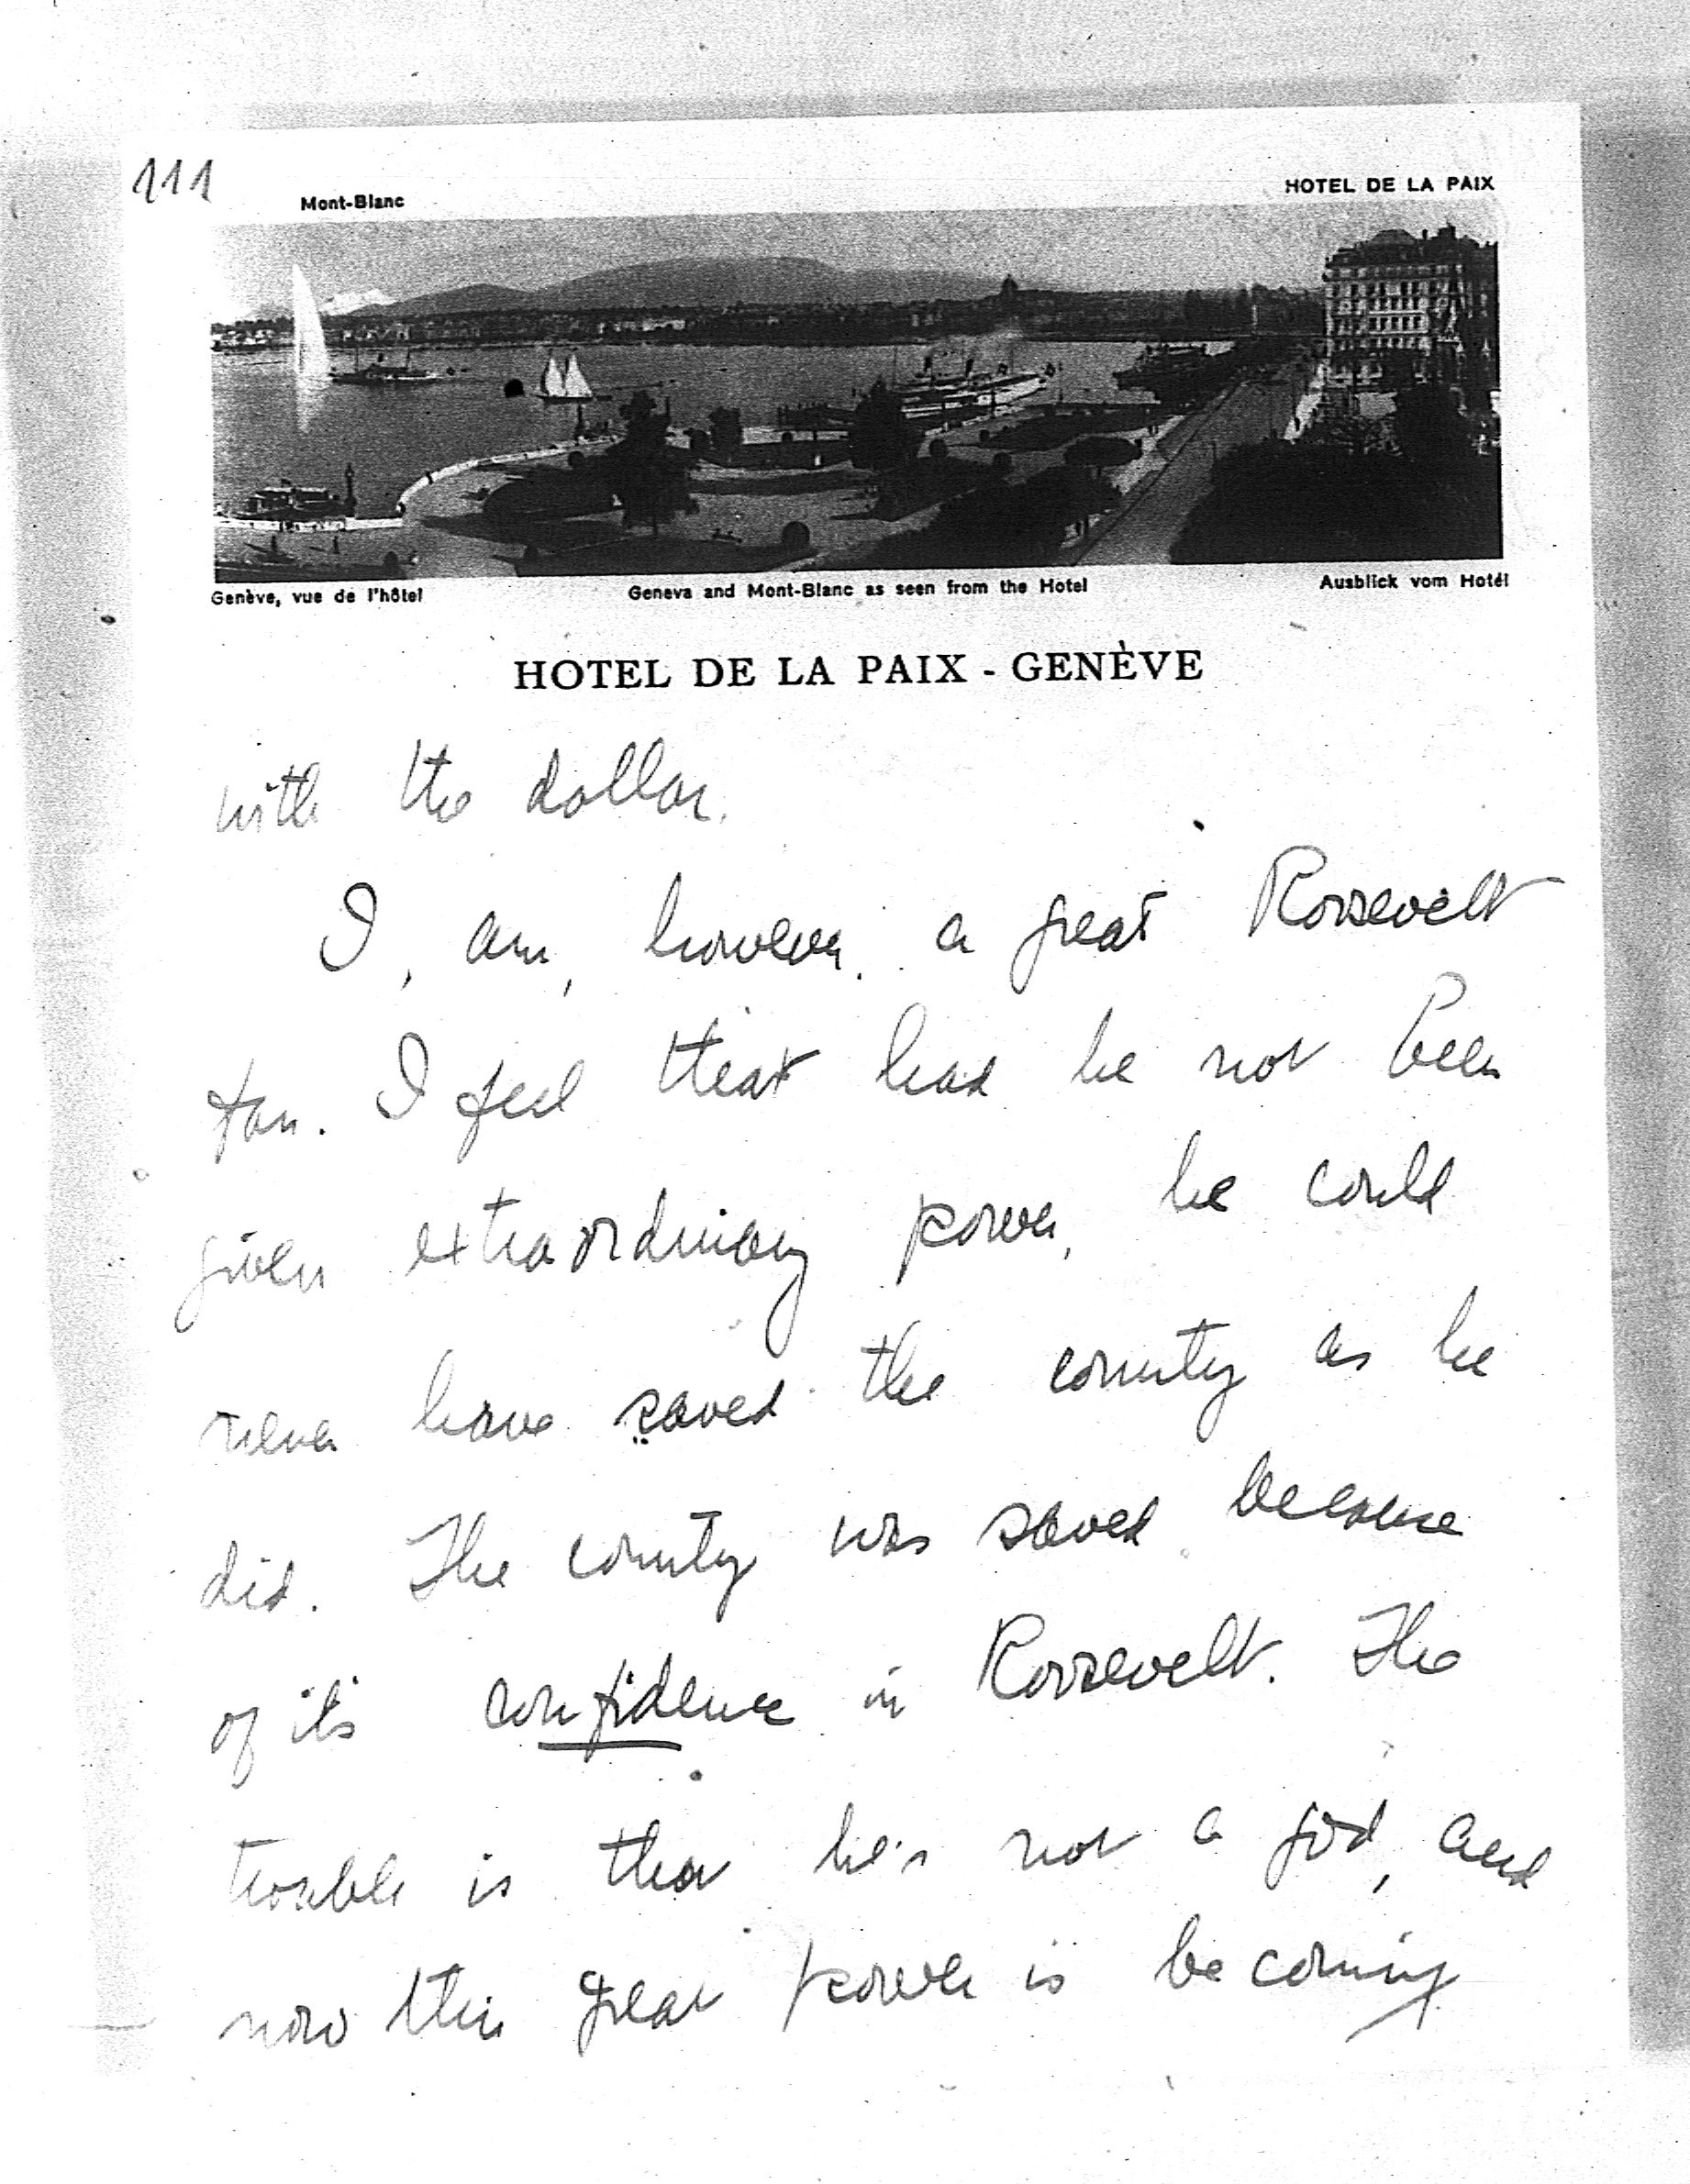 111
Mont-Blanc HOTEL DE LA PAIX
Genève, vue de l'hôtel Geneva and Mont-Blanc as seen from the Hotel Ausblick vom Hotel
HOTEL DE LA PAIX - GENÈVE
with the dollar.
I, am, however, a great Roosevelt
fan. I feel that had he not been
given extraordinary power, he could
never have saved the country as he
did. The country was saved because
of it's confidence in Roosevelt. The
trouble is that he's not a god, and
now this great power is becoming